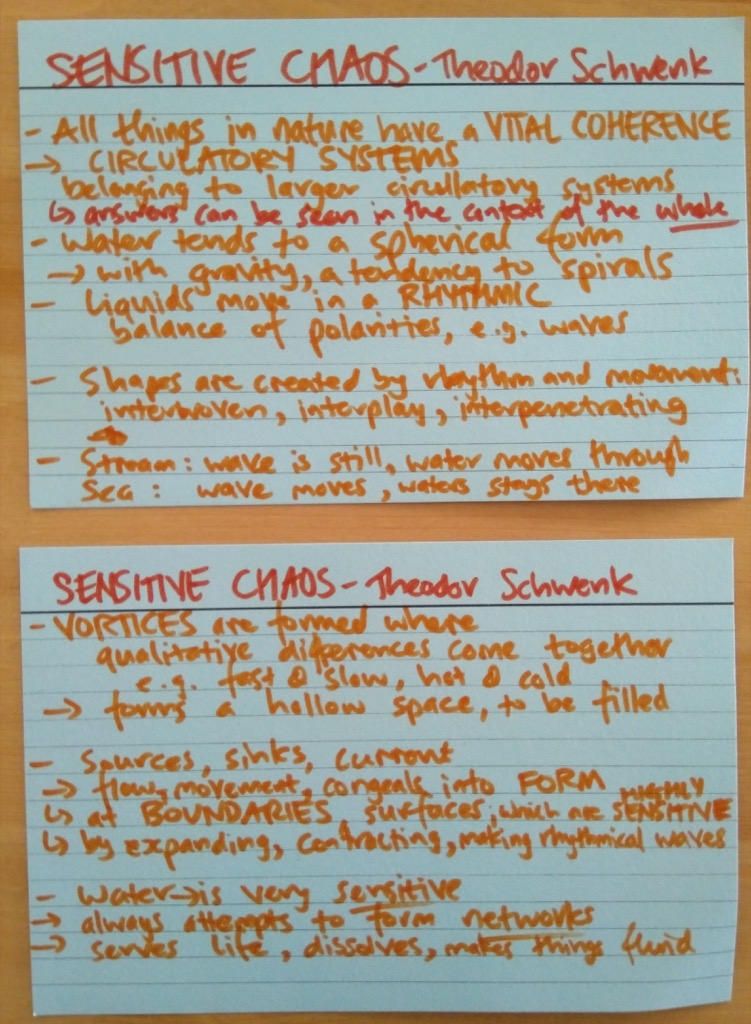 SENSITIVE CHAOS - Theodor Schwenk
- All things in nature have a VITAL COHERENCE
→ CIRCULATORY SYSTEMS
belonging to larger circullatory systems
↳ answers can be seen in the context of the whole
- Water tends to a spherical form
→ with gravity, a tendency to spirals
- Liquids move in a RHYTHMIC
balance of polarities, e.g. waves
- Shapes are created by rhythm and movement:
interwoven, interplay, interpenetrating
- Stream: wave is still, water moves through
Sea: wave moves, waters stays there
SENSITIVE CHAOS - Theodor Schwenk
- VORTICES are formed where
qualitative differences come together
e.g. fast & slow, hot & cold
→ forms a hollow space, to be filled
- Sources, sinks, current
→ flow, movement, congeals into FORM
↳ at BOUNDARIES, surfaces, which are HIGHLY SENSITIVE
↳ by expanding, contracting, making rhythmical waves
- Water → is very sensitive
→ always attempts to form networks
→ serves life, dissolves, makes things fluid